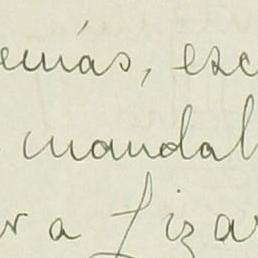 emás, esc
mandal
r a Lizar